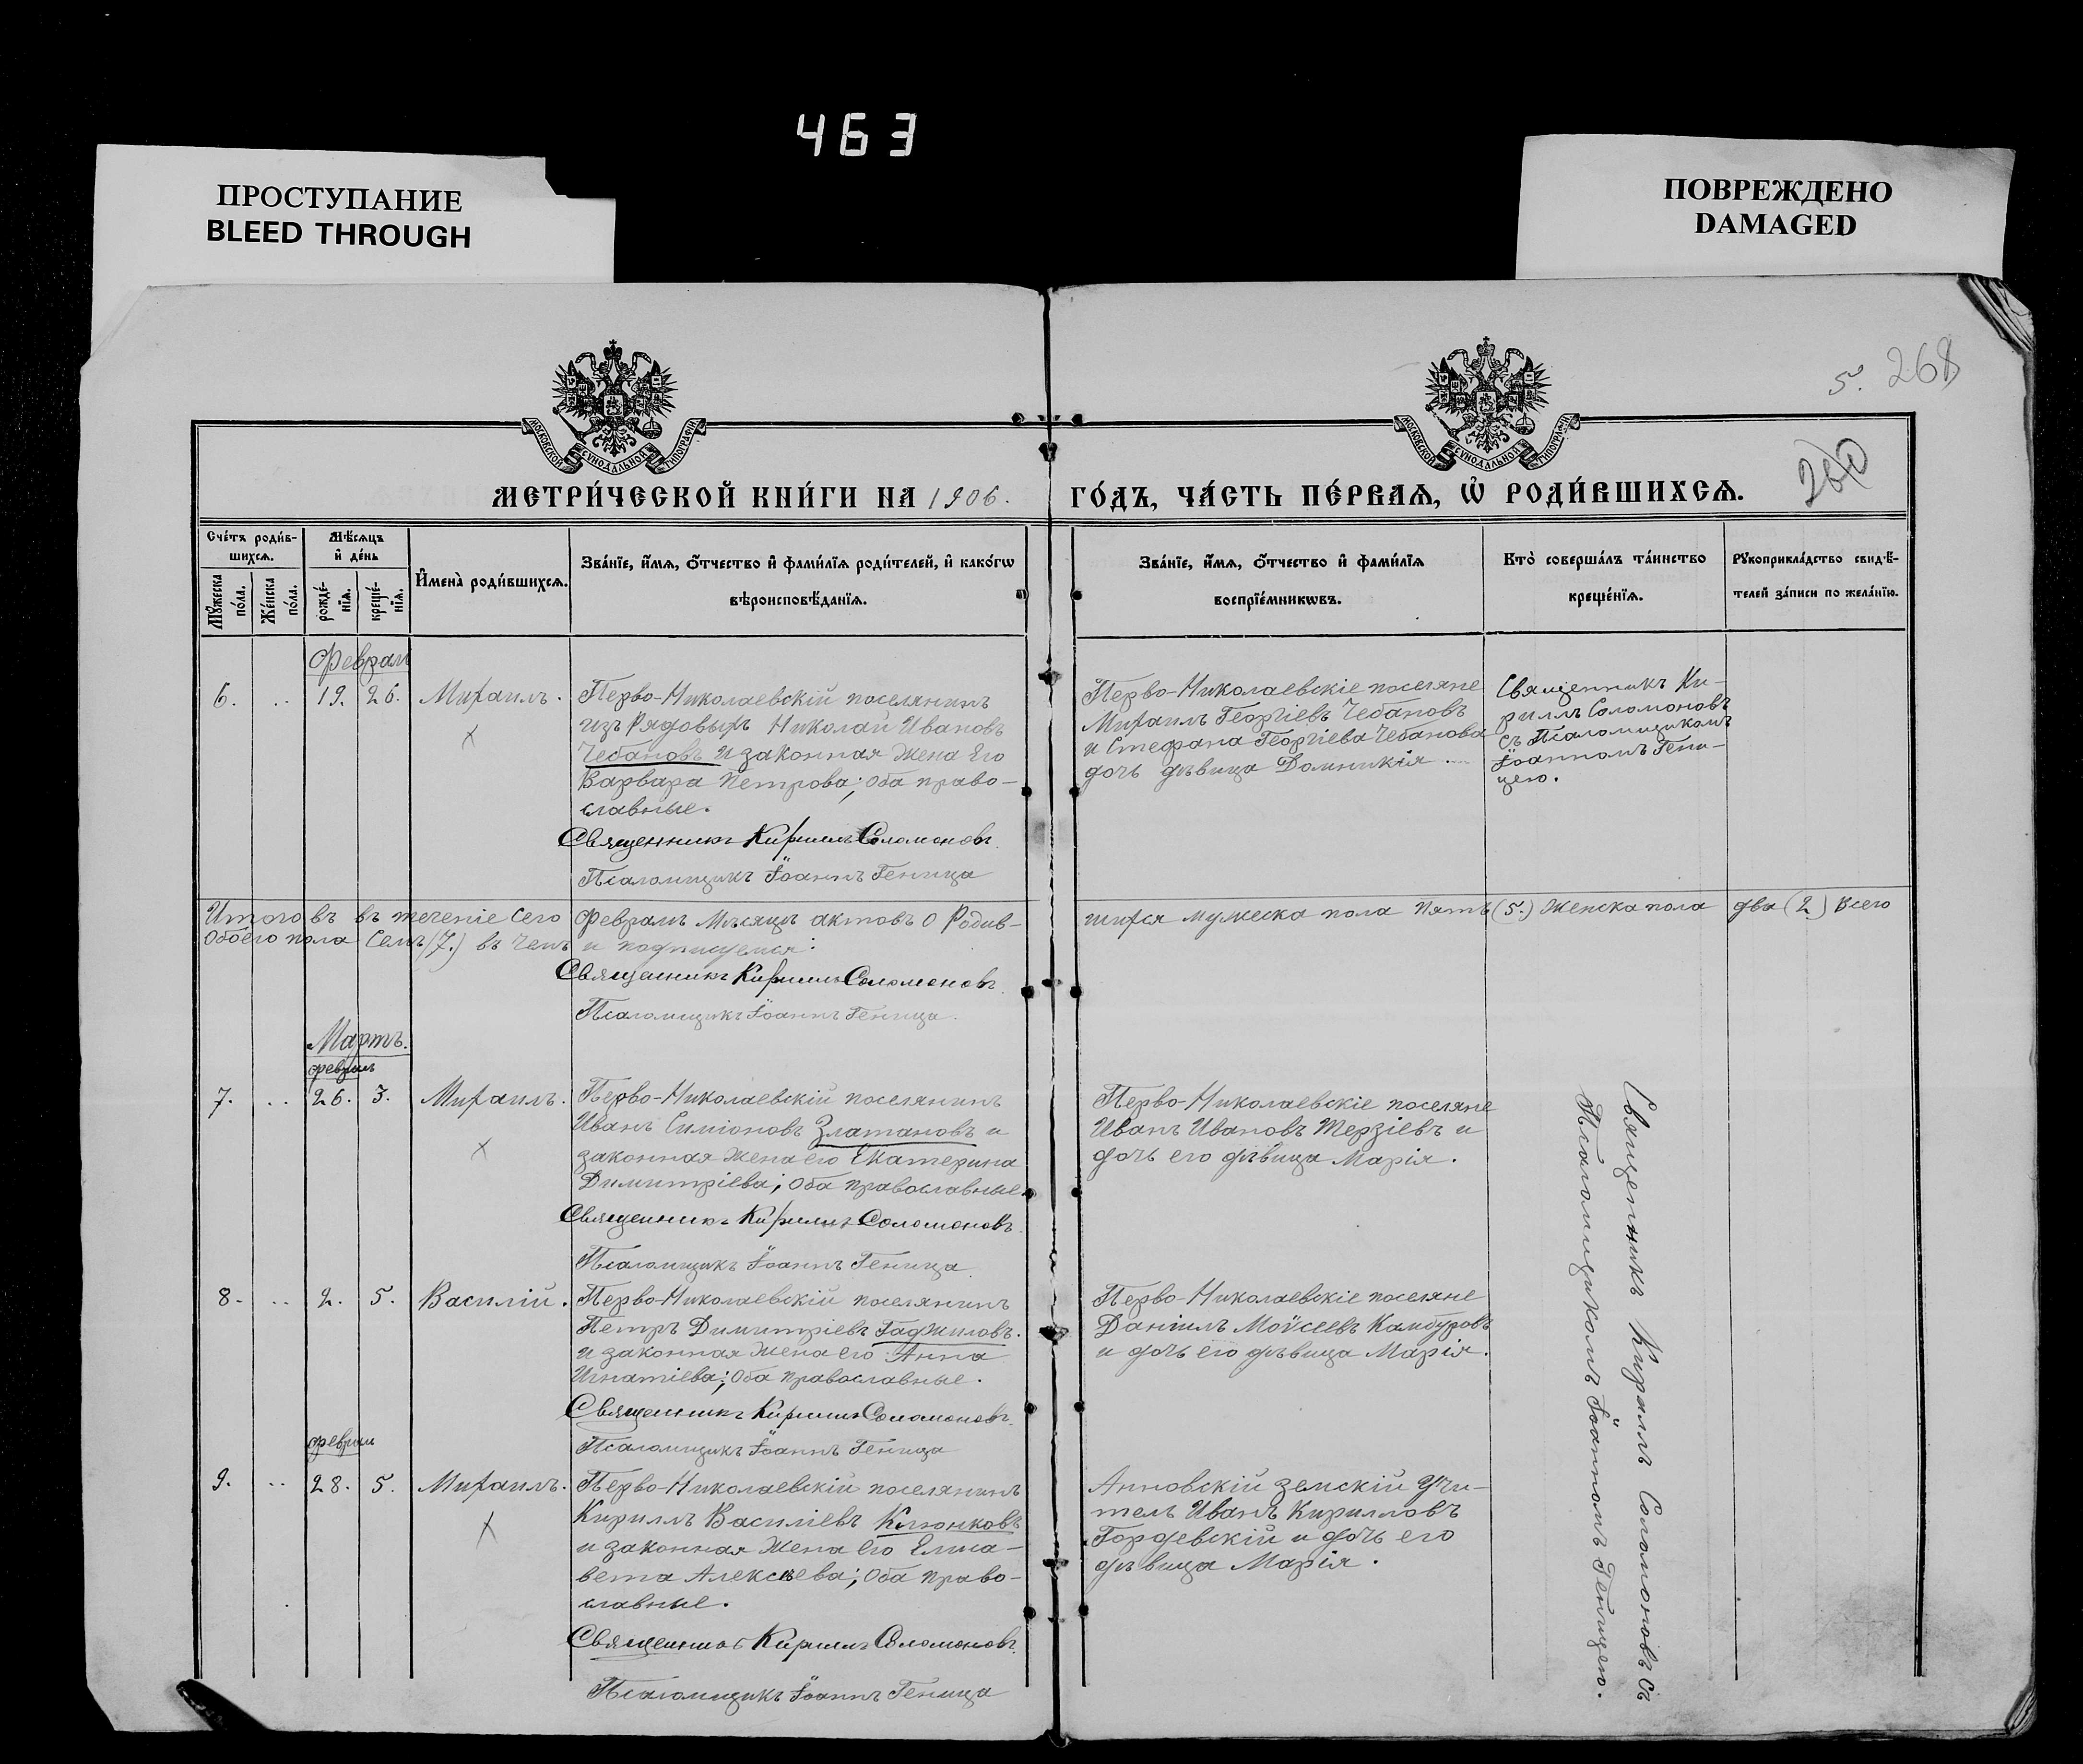 463
ПРОСТУПАНИЕ
BLEED THROUGH
ПОВРЕЖДЕНО
DAMAGED
5. 268
260
МОСКОВСКОЙ СѴНОДАЛЬНОЙ ТИПОГРАФІИ
МОСКОВСКОЙ СѴНОДАЛЬНОЙ ТИПОГРАФІИ
МЕТРИ́ЧЕСКОЙ КНИ́ГИ НА 1906. ГО́ДЪ, ЧА́СТЬ ПЕ́РВАЯ, Ѡ҆ РОДИ́ВШИХСЯ.
Сче́тъ роди́в-
шихся.
Мꙋ́жеска по́ла.
Же́нска по́ла.
Мѣ́сяцъ
и҆ де́нь
рожде́-
нїя.
креще́-
нїя.
И҆мена̀ роди́вшихся.
Зва́нїе, и҆́мя, ѻ҆́тчество и҆ фами́лїя роди́телей, и҆ како́гѡ
вѣроисповѣ́данїя.
Зва́нїе, и҆́мя, ѻ҆́тчество и҆ фами́лїя
воспрїе́мникѡвъ.
Кто̀ соверша́лъ та́инство
креще́нїя.
Рꙋкоприкла́дство свидѣ́-
телей за́писи по жела́нїю.
Февраль
6. .. 19. 26. Михаилъ.
Перво-Николаевскій поселянинъ
изъ Рядовыхъ Николай Ивановъ
Чебановъ и законная жена Его
Варвара Петрова; Оба право-
славные.
Священникъ Кириллъ Соломоновъ
Псаломщикъ Іоаннъ Геница
Перво-Николаевскіе поселяне
Михаилъ Георгіевъ Чебановъ
и Стефана Георгіева Чебанова
дочь дѣвица Домникія.
Священникъ Ки-
риллъ Соломоновъ
съ Псаломщикомъ
Іоанномъ Гени-
цею.
Итого въ въ теченіе Сего Февраль Мѣсяцъ актовъ о Родив- шихся мужеска пола Пять (5.) Женска пола два (2) Всего
Обоего пола Семь (7.) въ Чемъ и подпишемся:
Священникъ Кириллъ Соломоновъ
Псаломщикъ Іоаннъ Геница.
Мартъ.
февраль
7. .. 26. 3. Михаилъ.
Перво-Николаевскій поселянинъ
Иванъ Симіоновъ Златановъ и
законная жена его Екатерина
Димитріева; Оба православные.
Священникъ Кириллъ Соломоновъ
Псаломщикъ Іоаннъ Геница
Перво-Николаевскіе поселяне
Иванъ Ивановъ Терзіевъ и
дочь его дѣвица Марія.
8. .. 2. 5. Василій.
Перво-Николаевскій поселянинъ
Петръ Димитріевъ Гаджиловъ.
и законная жена его Анна
Игнатіева; Оба православные.
Священникъ Кириллъ Соломоновъ
Псаломщикъ Іоаннъ Геница
Перво-Николаевскіе поселяне
Даніилъ Моѵсеевъ Камбуровъ
и дочь его дѣвица Марія.
феврал
9. .. 28. 5. Михаилъ.
Перво-Николаевскій поселянинъ
Кириллъ Василіевъ Клюнковъ
и законная жена его Елиса-
вета Алексѣева; Оба право-
славные.
Священникъ Кириллъ Соломоновъ
Псаломщикъ Іоаннъ Геница
Анновскій земскій Учи-
тель Иванъ Кирилловъ
Гордевскій и дочь его
дѣвица Марія.
Священникъ Кириллъ Соломоновъ съ
Псаломщикомъ Іоанномъ Геницею.